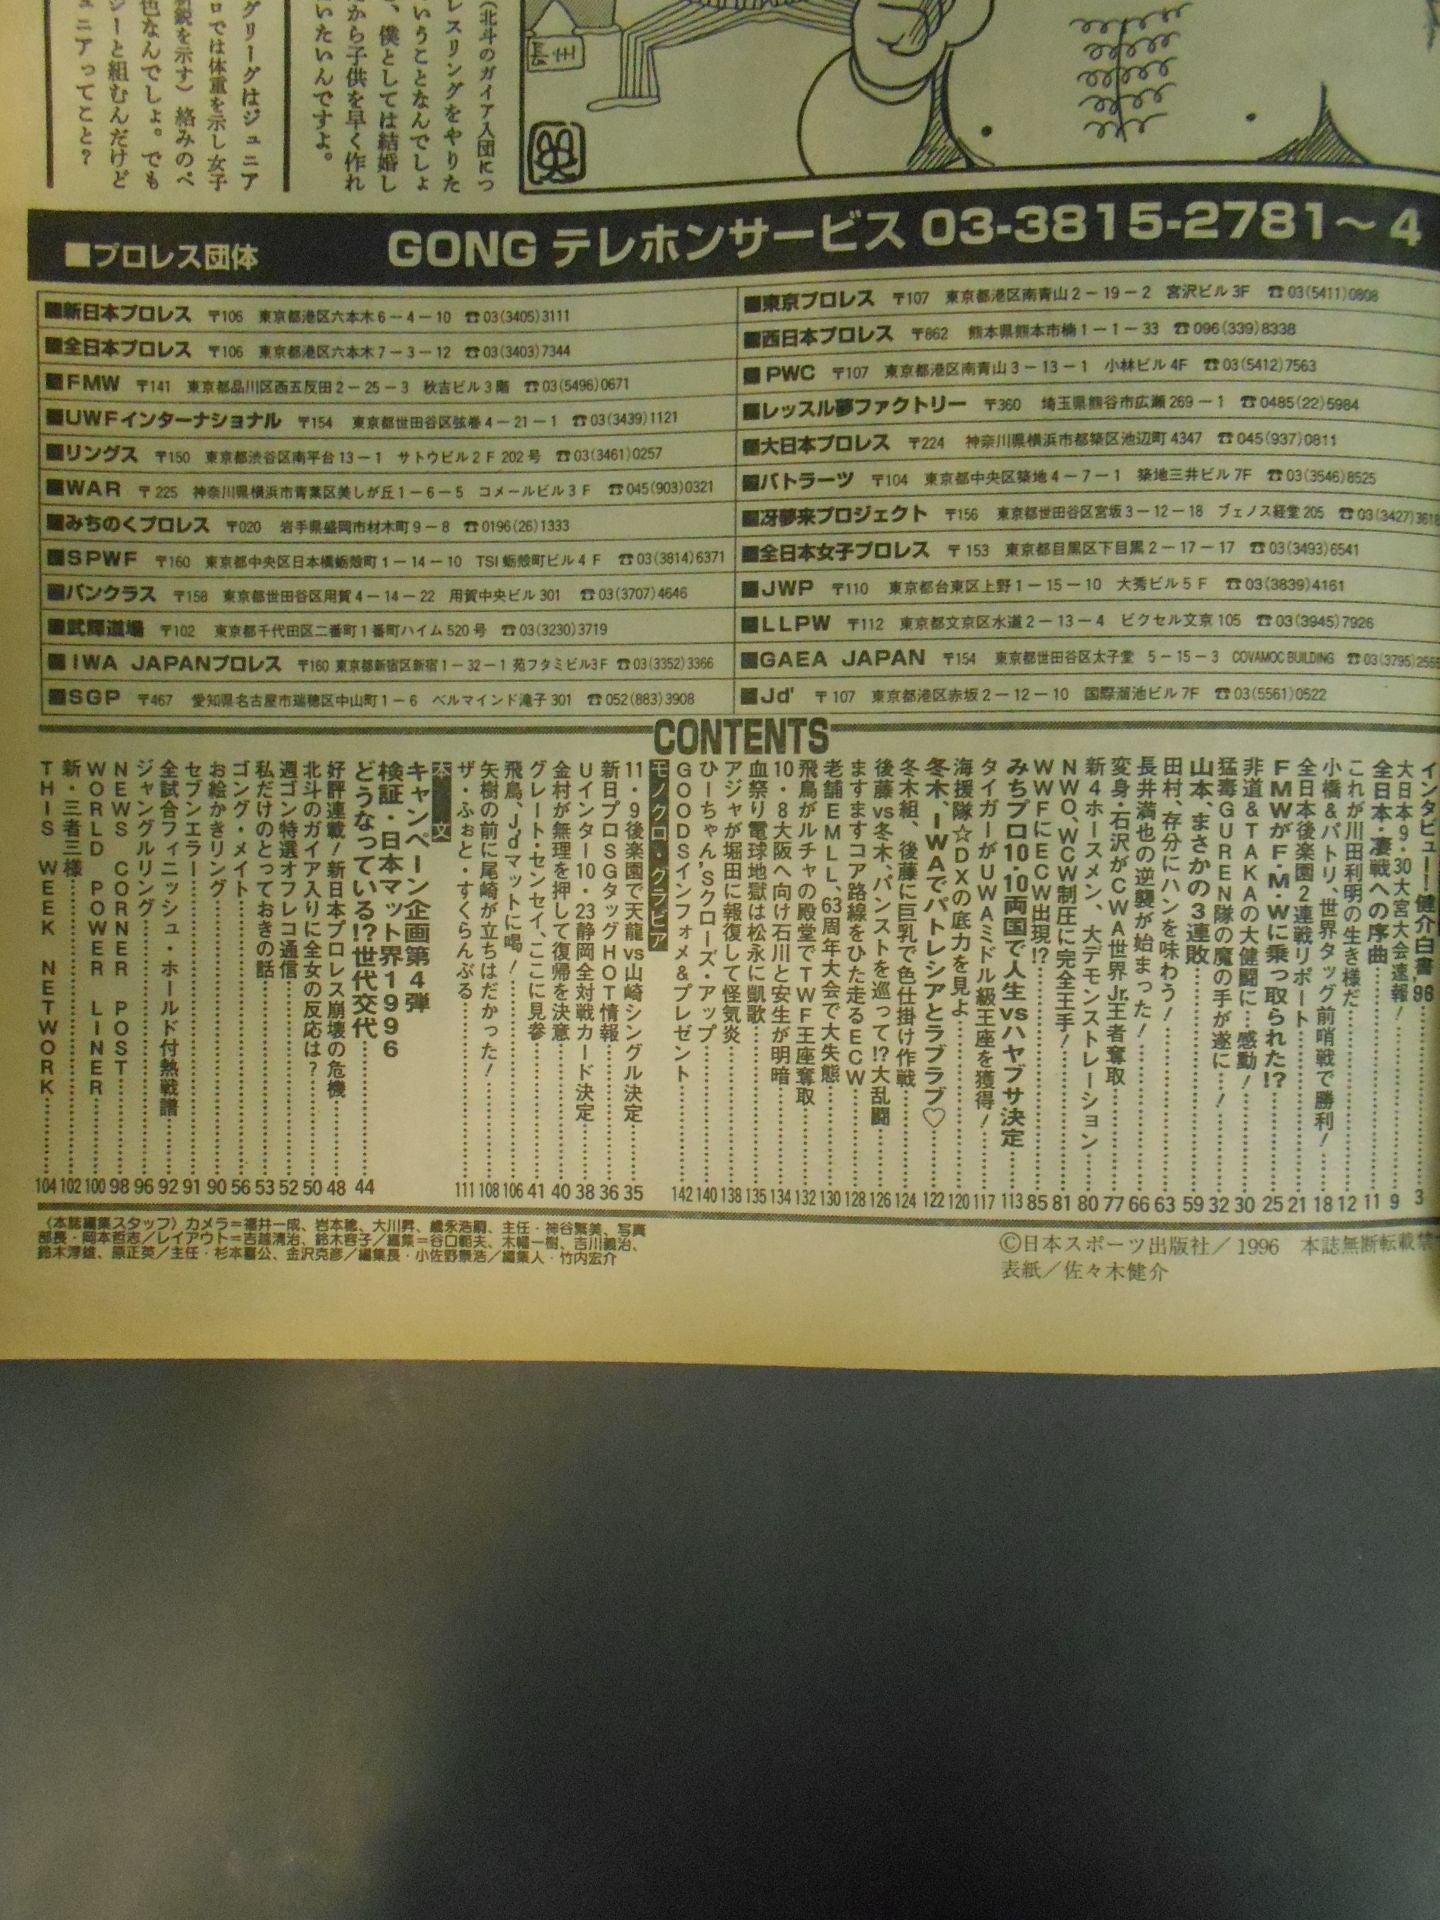 （北斗のガイア入団につ
レスリングをやりた
いうことなんでしょ
、僕としては結婚し
から子供を早く作れ
いたいんですよ。
グリーグはジュニア
ロでは体重を示し女子
鋭を示す）絡みのペ
色なんでしょ。でも
ジーと組むんだけど
ュニアってこと？
■プロレス団体
GONG テレホンサービス 03-3815-2781～4
■新日本プロレス 〒106 東京都港区六本木6－4－10 ☎03(3405)3111
■全日本プロレス 〒106 東京都港区六本木7－3－12 ☎03(3403)7344
■FMW 〒141 東京都品川区西五反田2－25－3 秋吉ビル3階 ☎03(5496)0671
■UWFインターナショナル 〒154 東京都世田谷区弦巻4－21－1 ☎03(3439)1121
■リングス 〒150 東京都渋谷区南平台13－1 サトウビル2F 202号 ☎03(3461)0257
■WAR 〒225 神奈川県横浜市青葉区美しが丘1－6－5 コメールビル3F ☎045(903)0321
■みちのくプロレス 〒020 岩手県盛岡市材木町9－8 ☎0196(26)1333
■SPWF 〒160 東京都中央区日本橋蛎殻町1－14－10 TSI蛎殻町ビル4F ☎03(3814)6371
■パンクラス 〒158 東京都世田谷区用賀4－14－22 用賀中央ビル301 ☎03(3707)4646
■武輝道場 〒102 東京都千代田区二番町1番町ハイム520号 ☎03(3230)3719
■IWA JAPANプロレス 〒160 東京都新宿区新宿1－32－1 苑フタミビル3F ☎03(3352)3366
■SGP 〒467 愛知県名古屋市瑞穂区中山町1－6 ベルマインド滝子301 ☎052(883)3908
■東京プロレス 〒107 東京都港区南青山2－19－2 宮沢ビル3F ☎03(5411)0808
■西日本プロレス 〒862 熊本県熊本市楠1－1－33 ☎096(339)8338
■PWC 〒107 東京都港区南青山3－13－1 小林ビル4F ☎03(5412)7563
■レッスル夢ファクトリー 〒360 埼玉県熊谷市広瀬269－1 ☎0485(22)5984
■大日本プロレス 〒224 神奈川県横浜市都築区池辺町4347 ☎045(937)0811
■バトラーツ 〒104 東京都中央区築地4－7－1 築地三井ビル7F ☎03(3546)8525
■冴夢来プロジェクト 〒156 東京都世田谷区宮坂3－12－18 ブェノス経堂205 ☎03(3427)3618
■全日本女子プロレス 〒153 東京都目黒区下目黒2－17－17 ☎03(3493)6541
■JWP 〒110 東京都台東区上野1－15－10 大秀ビル5F ☎03(3839)4161
■LLPW 〒112 東京都文京区水道2－13－4 ビクセル文京105 ☎03(3945)7926
■GAEA JAPAN 〒154 東京都世田谷区太子堂 5－15－3 COVAMOC BUILDING ☎03(3795)2555
■Jd' 〒107 東京都港区赤坂2－12－10 国際溜池ビル7F ☎03(5561)0522
CONTENTS
インタビュー！健介白書'96……3
大日本9・30大宮大会速報！……9
全日本・凄戦への序曲……11
これが川田利明の生き様だ……12
小橋＆パトリ、世界タッグ前哨戦で勝利！……18
全日本後楽園2連戦リポート……21
FMWがF・M・Wに乗っ取られた!?……25
非道＆TAKAの大健闘に…感動！……30
猛毒GURENの魔の手が遂に…！……32
山本、まさかの3連敗……59
田村、存分にハンを味わう！……63
長井満也の逆襲が始まった！……66
変身・石沢がCWA世界Jr.王者奪取……77
新4ホースメン、大デモンストレーション……80
NWO、WCW制圧に完全王手！……81
WWFにECW出現!?……85
みちプロ10・10両国で人生vsハヤブサ決定……113
タイガーがUWAミドル級王座を獲得！……117
海援隊☆DXの底力を見よ……120
冬木、IWAでパトレシアとラブラブ♡……122
冬木組、後藤に巨乳で色仕掛け作戦……124
後藤vs冬木、パンストを巡って!?大乱闘……126
ますますコア路線をひた走るECW……128
老舗EMLL、63周年大会で大失態……130
飛鳥がルチャの殿堂でTWF王座奪取……132
10・8大阪へ向け石川と安生が明暗……134
血祭り電球地獄は松永に凱歌……135
アジャが堀田に報復して怪気炎……138
ひーちゃん'Sクローズ・アップ……140
GOODSインフォメ＆プレゼント……142
モノクロ・グラビア
11・9後楽園で天龍vs山崎シングル決定……35
新日プロSGタッグHOT情報……36
Uインター10・23静岡全対戦カード決定……38
金村が無理を押して復帰を決意……40
グレート・センセイ、ここに見参……41
飛鳥、Jd'マットに喝！……106
矢樹の前に尾崎が立ちはだかった！……108
ザ・ふぉと・すくらんぶる……111
本文
キャンペーン企画第4弾
検証・日本マット界1996
どうなっている!?世代交代……44
好評連載！新日本プロレス崩壊の危機……48
北斗のガイア入りに全女の反応は？……50
週ゴン特選オフレコ通信……52
私だけのとっておきの話……53
ゴング・メイト……56
お絵かきリング……90
セブンエラー……91
全試合フィニッシュ・ホールド付熱戦譜……92
ジャングルリング……96
NEWS CORNER POST……98
WORLD POWER LINER……100
新・三者三様……102
THIS WEEK NETWORK……104
〈本誌編集スタッフ〉カメラ＝福井一成、岩本穂、大川昇、歳永浩嗣、主任・神谷繁美、写真
部長・岡本哲志／レイアウト＝吉越清治、鈴木容子／編集＝谷口範夫、木幡一樹、吉川義治、
鈴木淳雄、原正英／主任・杉本喜公、金沢克彦／編集長・小佐野景浩／編集人・竹内宏介
©日本スポーツ出版社／1996 本誌無断転載禁
表紙／佐々木健介